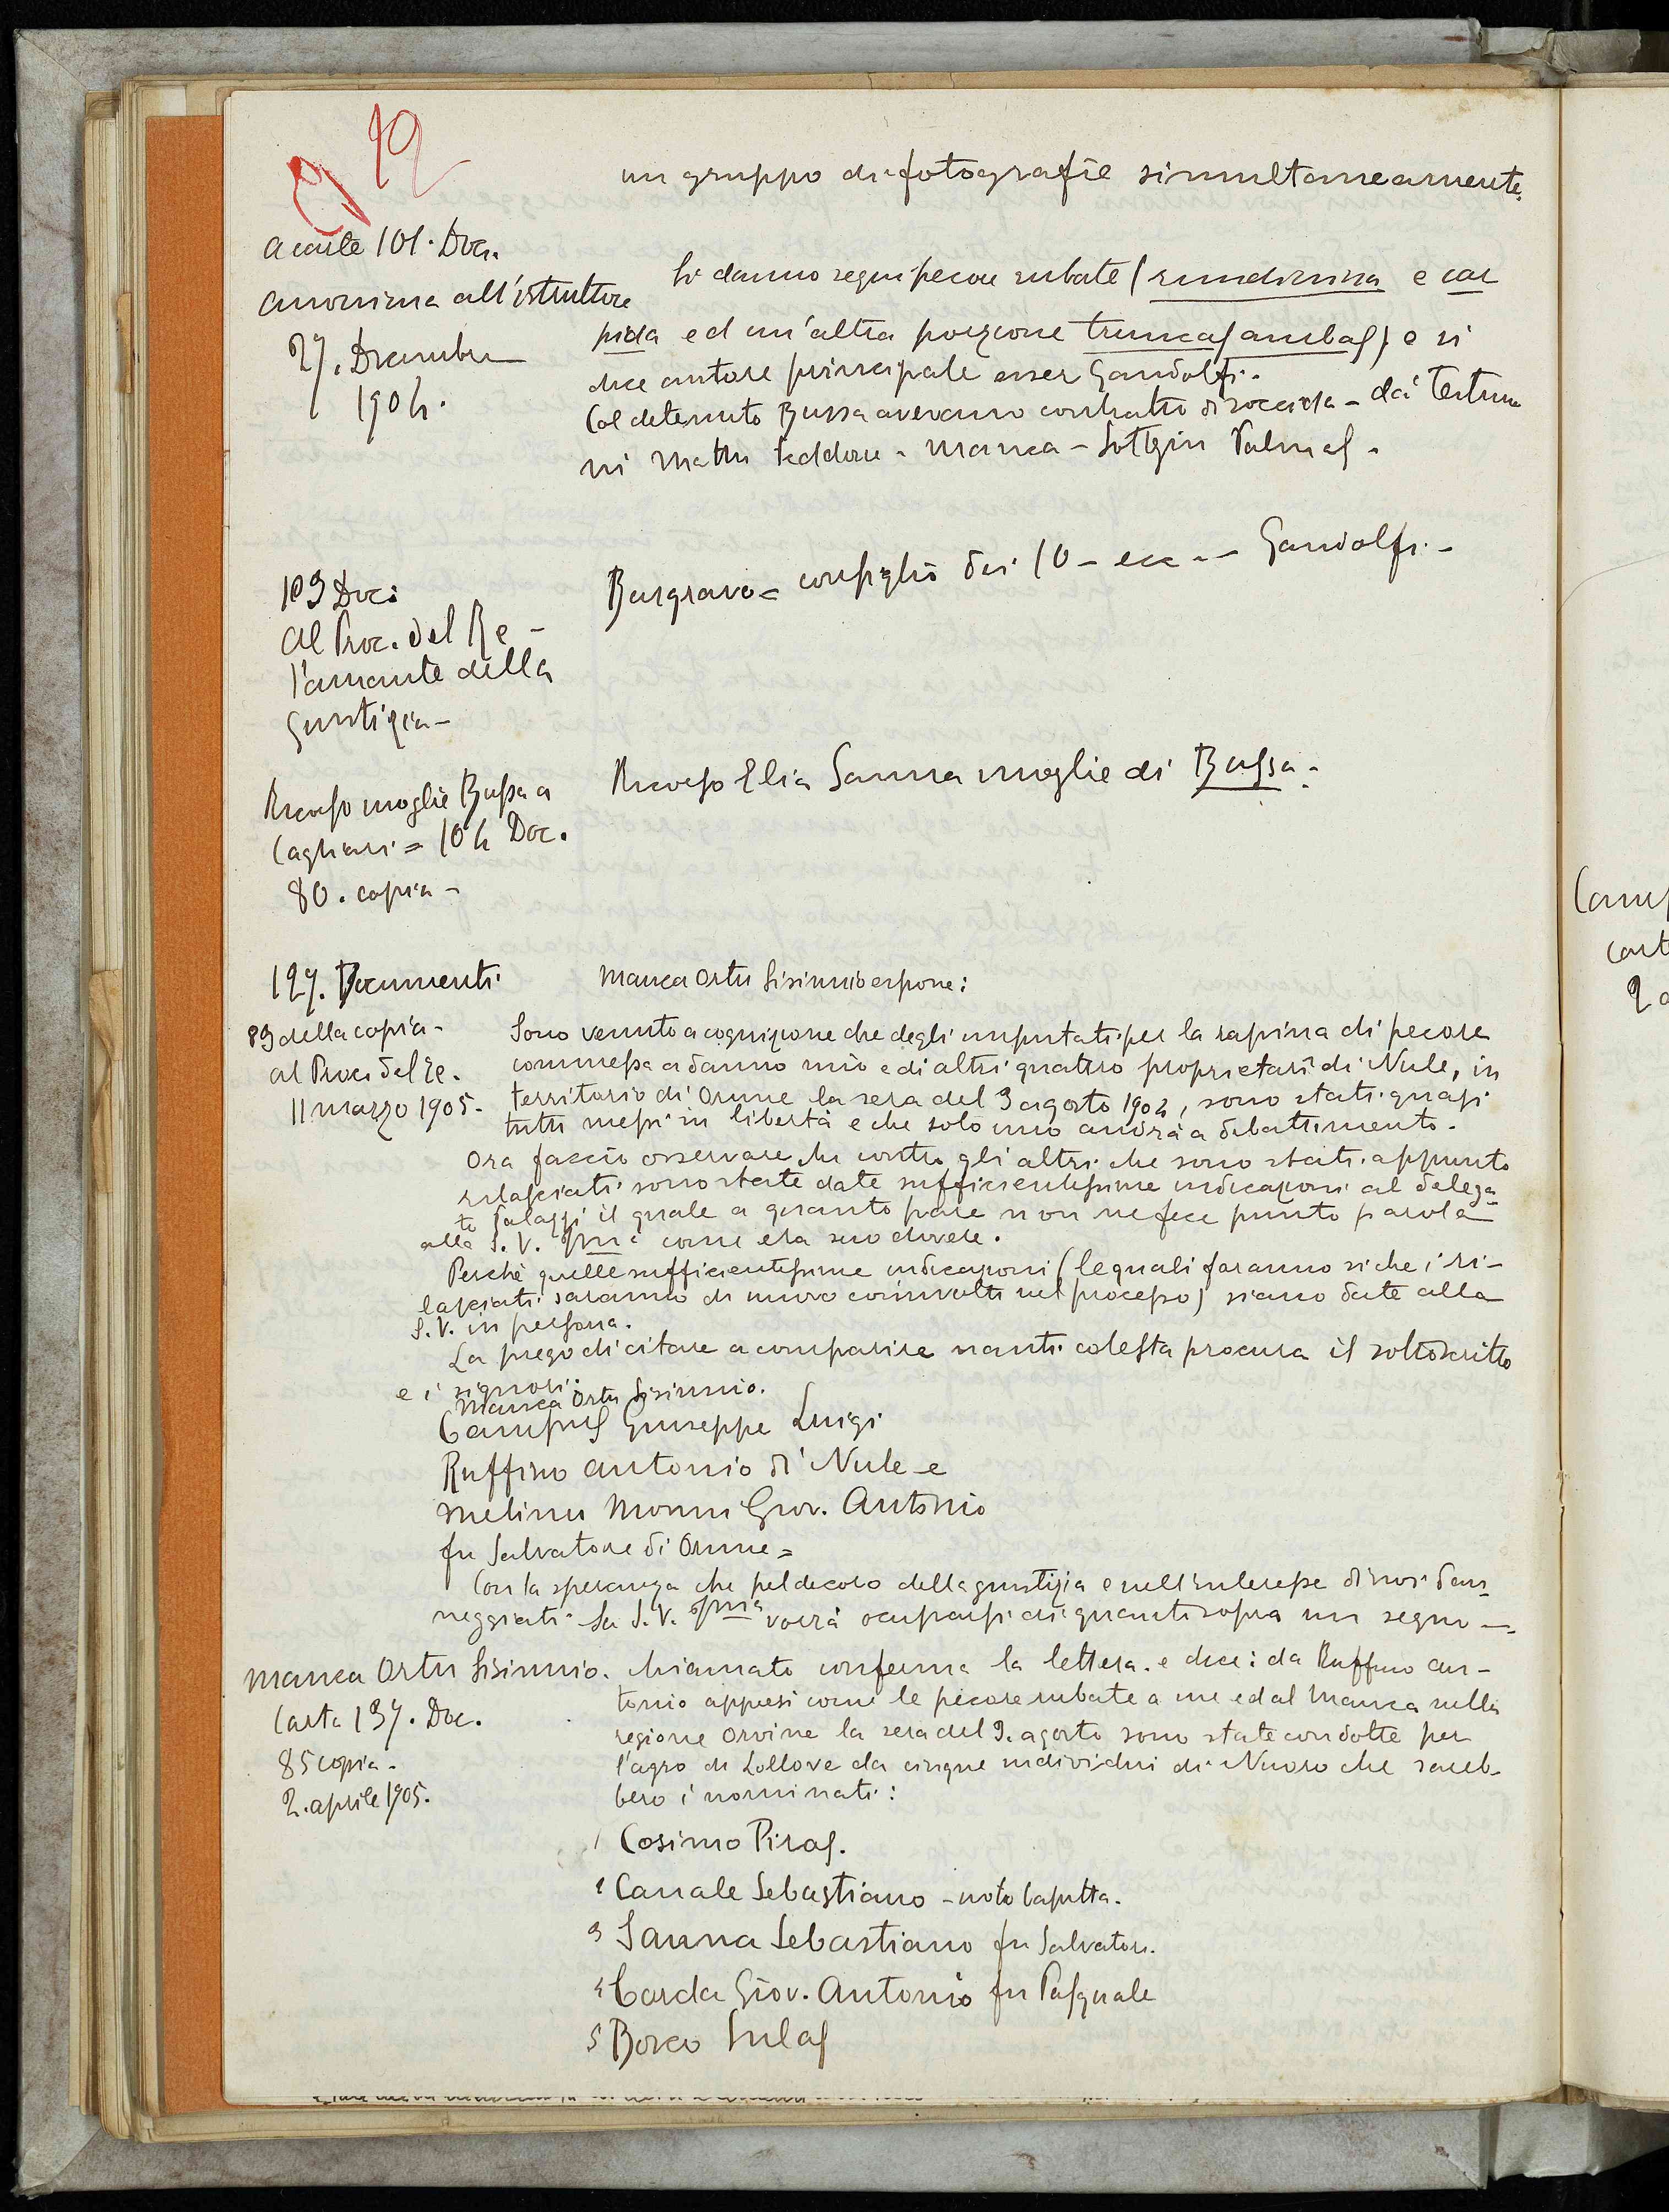 9 12
un gruppo di fotografie simultaneamente.
a carte 101. Doc.
anonima all'istruttore
27. Dicembre
1904.
Si danno segni pecore rubate (rundinina e cor
pida ed un'altra porzione truncas ambas) e si
dice autore principale esser Gandolfi.
Col detenuto Bussa avevano contratto di soccida - dà testimo
ni Mattu Taddeu - Manca - Sotgiu Palmas.
103 Doc:
al Proc. del Re -
l'amante della
Giustizia -
Burgravo = consiglio dei 10 - ecc -- Gandolfi. -
Ricorso moglie Bussa a
Cagliari = 104 Doc.
80. copia -
Ricorso Elia Sanna moglie di Bussa -
127. Documenti
83 della copia -
al Proc. del Re.
11 marzo 1905.
Manca Ortu Sisinnio espone:
Sono venuto a cognizione che degli imputati per la rapina di pecore
commessa a danno mio e di altri quattro proprietari di Nule, in
territorio di Orune la sera del 3 agosto 1904, sono stati quasi
tutti messi in libertà e che solo uno andrà a dibattimento.
Ora faccio osservare che contro gli altri che sono stati appunto
rilasciati sono state date sufficientissime indicazioni al delega-
to Salazzi il quale a quanto pare non ne fece punto parola
alla S. V. Ill.ma come era suo dovere.
Perchè quelle sufficientissime indicazioni (le quali faranno si che i ri-
lasciati saranno di nuovo coinvolti nel processo) siano date alla
S. V. in persona.
La prego di citare a comparire nanti codesta procura il sottoscritto
e i signori.
Manca Ortu Sisinnio.
Campus Giuseppe Luigi
Ruffino Antonio di Nule e
Melinu Monni Giov. Antonio
fu Salvatore di Orune =
Con la speranza che pel decoro della giustizia e nell'interesse di noi dan-
neggiati la S. V. Ill.ma vorrà occuparsi di quanto sopra mi segno -
Manca Ortu Sisinnio.
Carta 137. Doc.
85 copia -
2. aprile 1905.
chiamato conferma la lettera. e dice: da Ruffino An-
tonio appresi come le pecore rubate a me ed al Manca nella
regione Orvine la sera del 3. agosto sono state condotte per
l'agro di Lollove da cinque individui di Nuoro che sareb-
bero i nominati:
1 Cosimo Piras.
2 Canale Sebastiano - noto Caputta.
3 Sanna Sebastiano fu Salvatore.
4 Corda Giov. Antonio fu Pasquale
5 Borco Sulas
Camp
cart
2 a